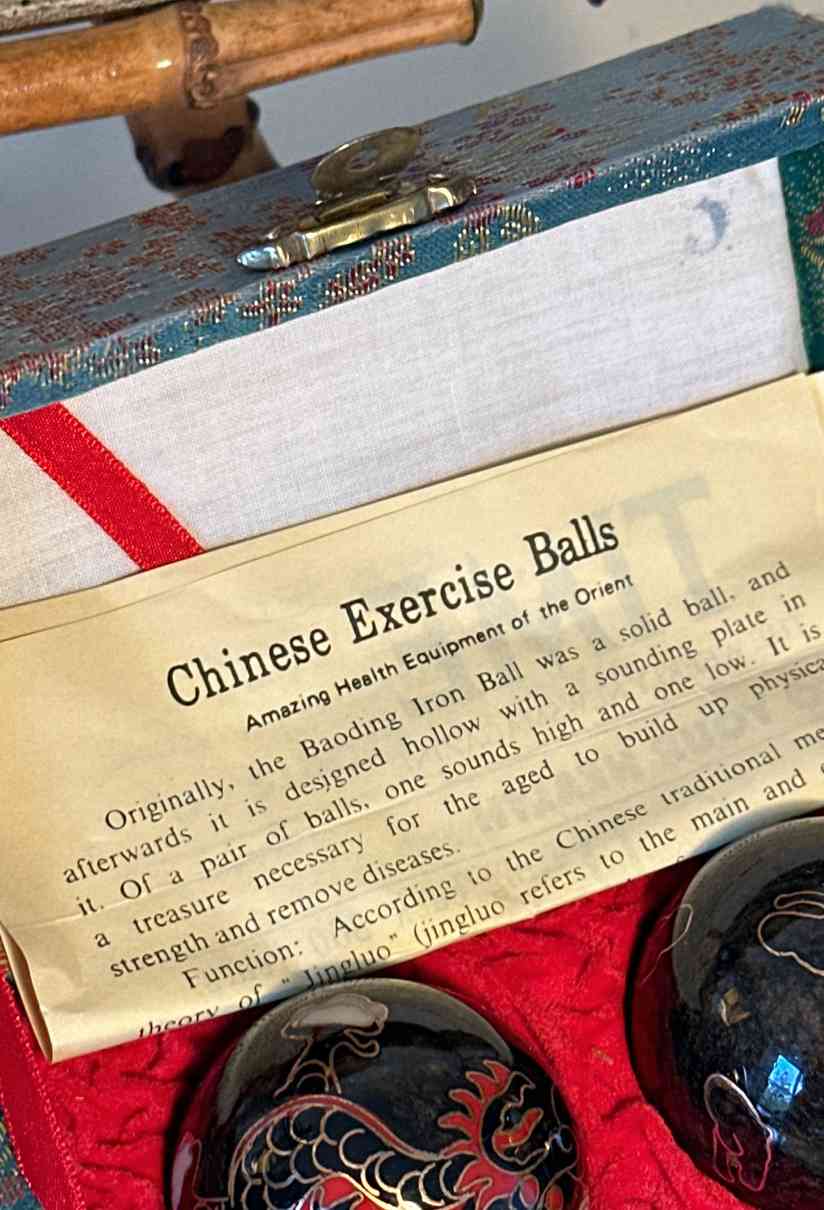 Chinese Exercise Balls
Amazing Health Equipment of the Orient
Originally, the Baoding Iron Ball was a solid ball, and
afterwards it is designed hollow with a sounding plate in
it. Of a pair of balls, one sounds high and one low. It is
a treasure necessary for the aged to build up
strength and remove diseases.
Function: According to the Chinese traditional
theory of "Jingluo" (jingluo refers to the main and